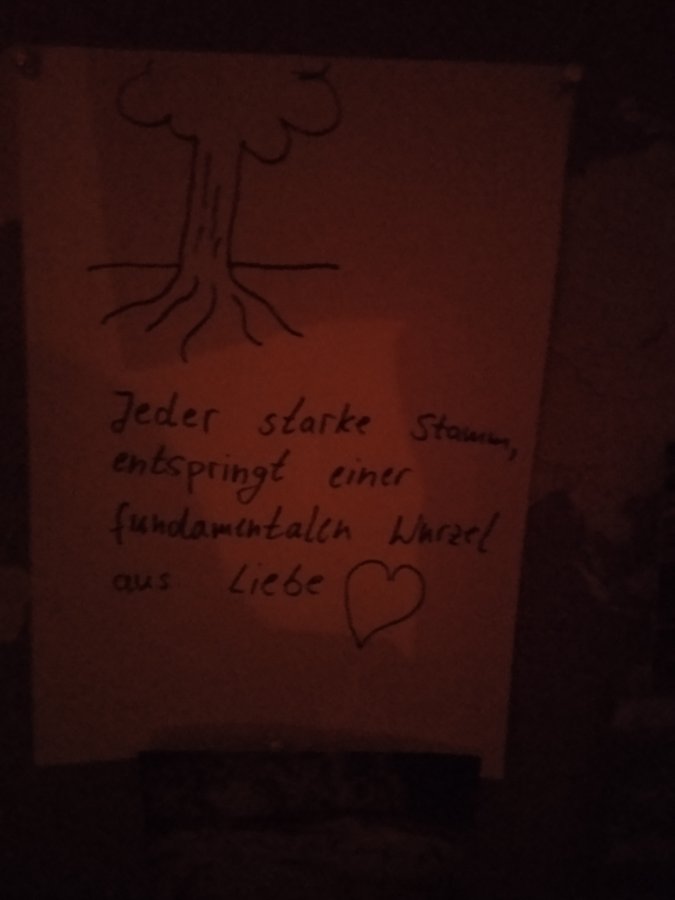 Jeder starke Stamm,
entspringt einer
fundamentalen Wurzel
aus Liebe